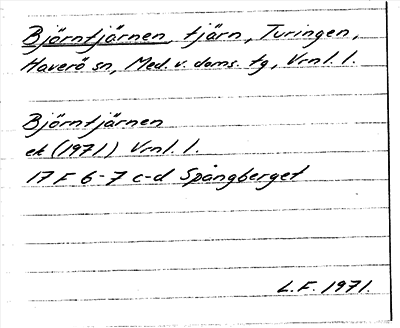 Björntjärnen, tjärn, Turingen,
Haverö sn, Med. v. doms. tg, Vrnl. l.
Björntjärnen
ek (1971) Vrnl. l.
17 F 6-7 c-d Spångberget
L.F. 1971.